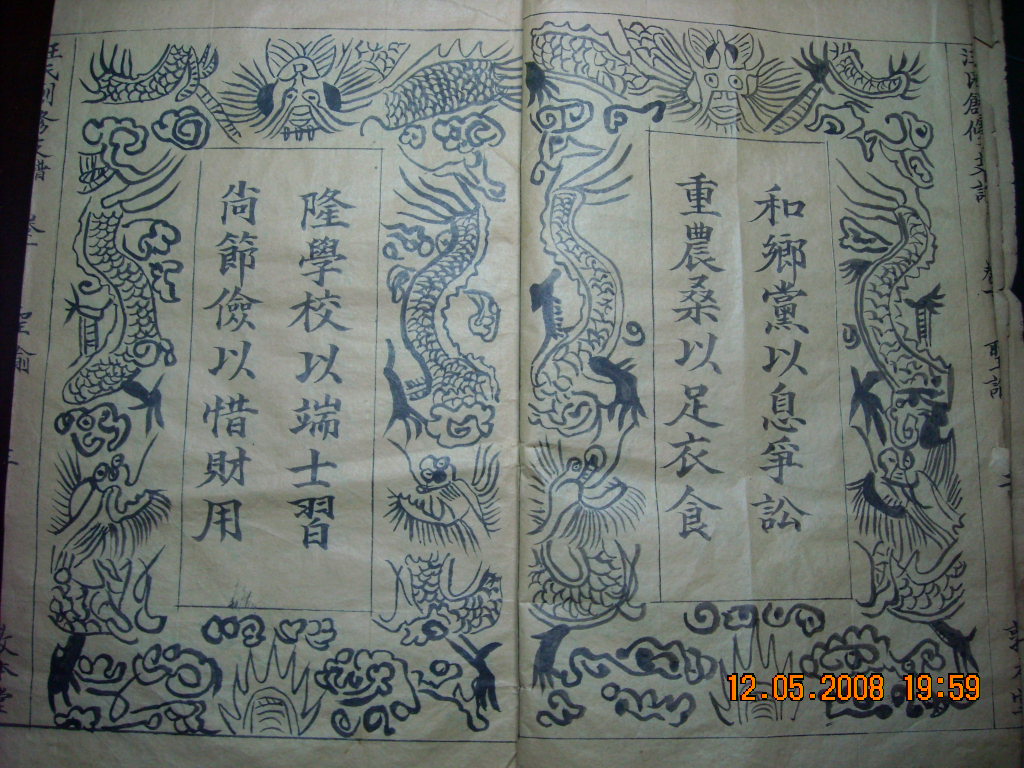 和鄉黨以息爭訟
重農桑以足衣食
隆學校以端士習
尚節儉以惜財用
12.05.2008 19:59